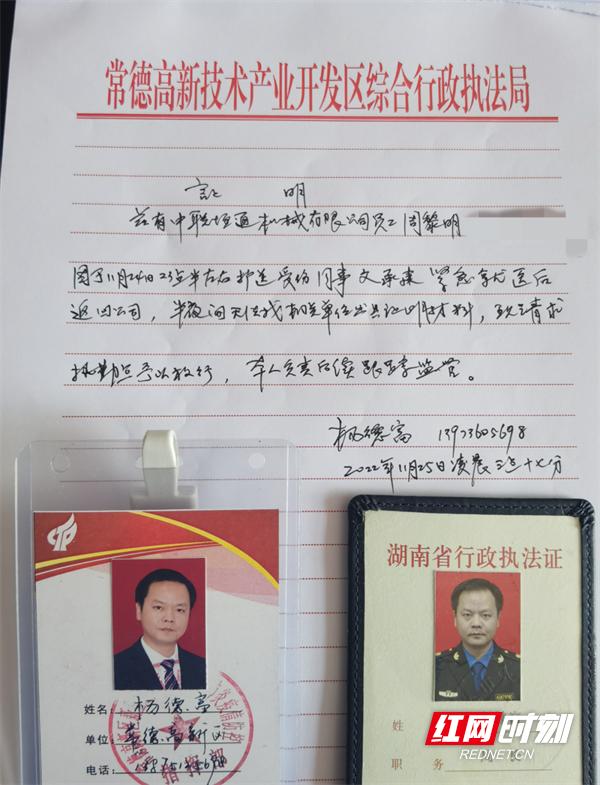 常德高新技术产业开发区综合行政执法局
证 明
兹有中联恒通机械有限公司员工周黎明
因于11月24日23点半左右护送受伤同事文承来紧急就医后
返回公司，半夜间无法找相关单位出具证明材料，现请求
执勤点予以放行，本人负责后续跟踪监管。
杨德富 13973605698
2022年11月25日凌晨三点十七分
姓名：杨德富
单位：常德高新区
电话：
指挥部
湖南省行政执法证
姓
职 务
红网时刻
REDNET.CN